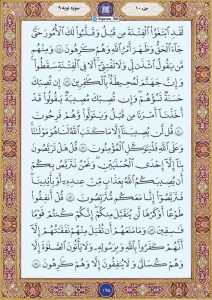 جزء ۱۰
سوره توبه ۹
لَقَدِ ٱبْتَغَوُا۟ ٱلْفِتْنَةَ مِن قَبْلُ وَقَلَّبُوا۟ لَكَ ٱلْأُمُورَ حَتَّىٰ
جَآءَ ٱلْحَقُّ وَظَهَرَ أَمْرُ ٱللَّهِ وَهُمْ كَٰرِهُونَ ۴۸ وَمِنْهُم
مَّن يَقُولُ ٱئْذَن لِّى وَلَا تَفْتِنِّىٓ أَلَا فِى ٱلْفِتْنَةِ سَقَطُوا۟
وَإِنَّ جَهَنَّمَ لَمُحِيطَةٌۢ بِٱلْكَٰفِرِينَ ۴۹ إِن تُصِبْكَ
حَسَنَةٌ تَسُؤْهُمْ وَإِن تُصِبْكَ مُصِيبَةٌ يَقُولُوا۟ قَدْ
أَخَذْنَآ أَمْرَنَا مِن قَبْلُ وَيَتَوَلَّوا۟ وَّهُمْ فَرِحُونَ ۵۰
قُل لَّن يُصِيبَنَآ إِلَّا مَا كَتَبَ ٱللَّهُ لَنَا هُوَ مَوْلَىٰنَا
وَعَلَى ٱللَّهِ فَلْيَتَوَكَّلِ ٱلْمُؤْمِنُونَ ۵۱ قُلْ هَلْ تَرَبَّصُونَ
بِنَآ إِلَّآ إِحْدَى ٱلْحُسْنَيَيْنِ وَنَحْنُ نَتَرَبَّصُ بِكُمْ
أَن يُصِيبَكُمُ ٱللَّهُ بِعَذَابٍ مِّنْ عِندِهِۦٓ أَوْ بِأَيْدِينَا
فَتَرَبَّصُوٓا۟ إِنَّا مَعَكُم مُّتَرَبِّصُونَ ۵۲ قُلْ أَنفِقُوا۟
طَوْعًا أَوْ كَرْهًا لَّن يُتَقَبَّلَ مِنكُمْ إِنَّكُمْ كُنتُمْ قَوْمًا
فَٰسِقِينَ ۵۳ وَمَا مَنَعَهُمْ أَن تُقْبَلَ مِنْهُمْ نَفَقَٰتُهُمْ إِلَّآ
أَنَّهُمْ كَفَرُوا۟ بِٱللَّهِ وَبِرَسُولِهِۦ وَلَا يَأْتُونَ ٱلصَّلَوٰةَ إِلَّا
وَهُمْ كُسَالَىٰ وَلَا يُنفِقُونَ إِلَّا وَهُمْ كَٰرِهُونَ ۵۴
۱۹۵